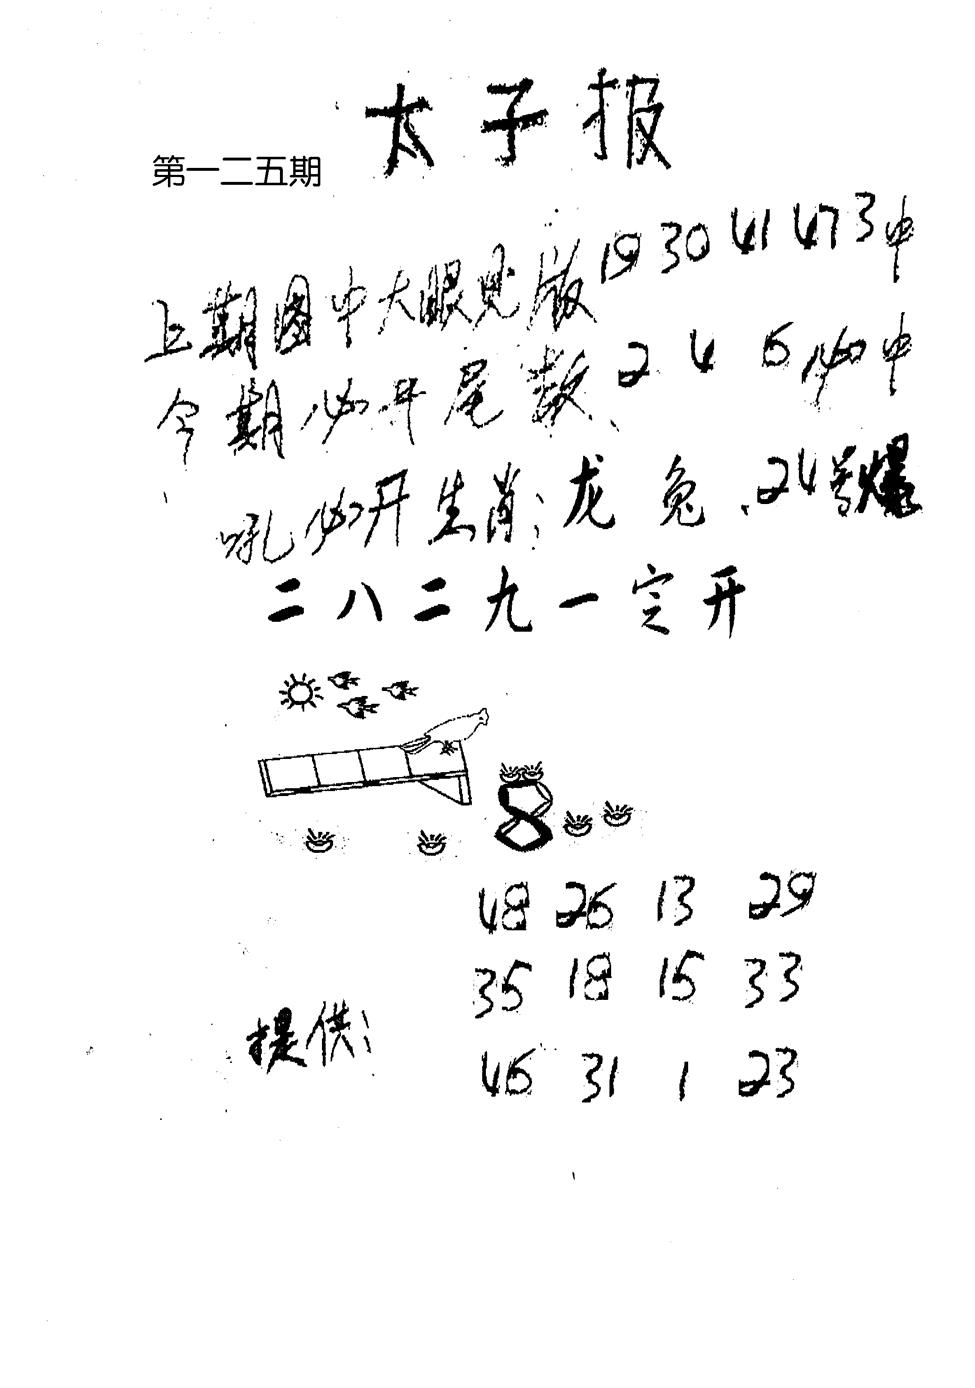 太子报
第一二五期
上期图中大眼见版 19 30 41 47 3中
今期必开尾数、2 4 6必中
吼必开生肖：龙 兔、24号爆
二八二九一定开
8
48 26 13 29
35 18 15 33
提供：
46 31 1 23